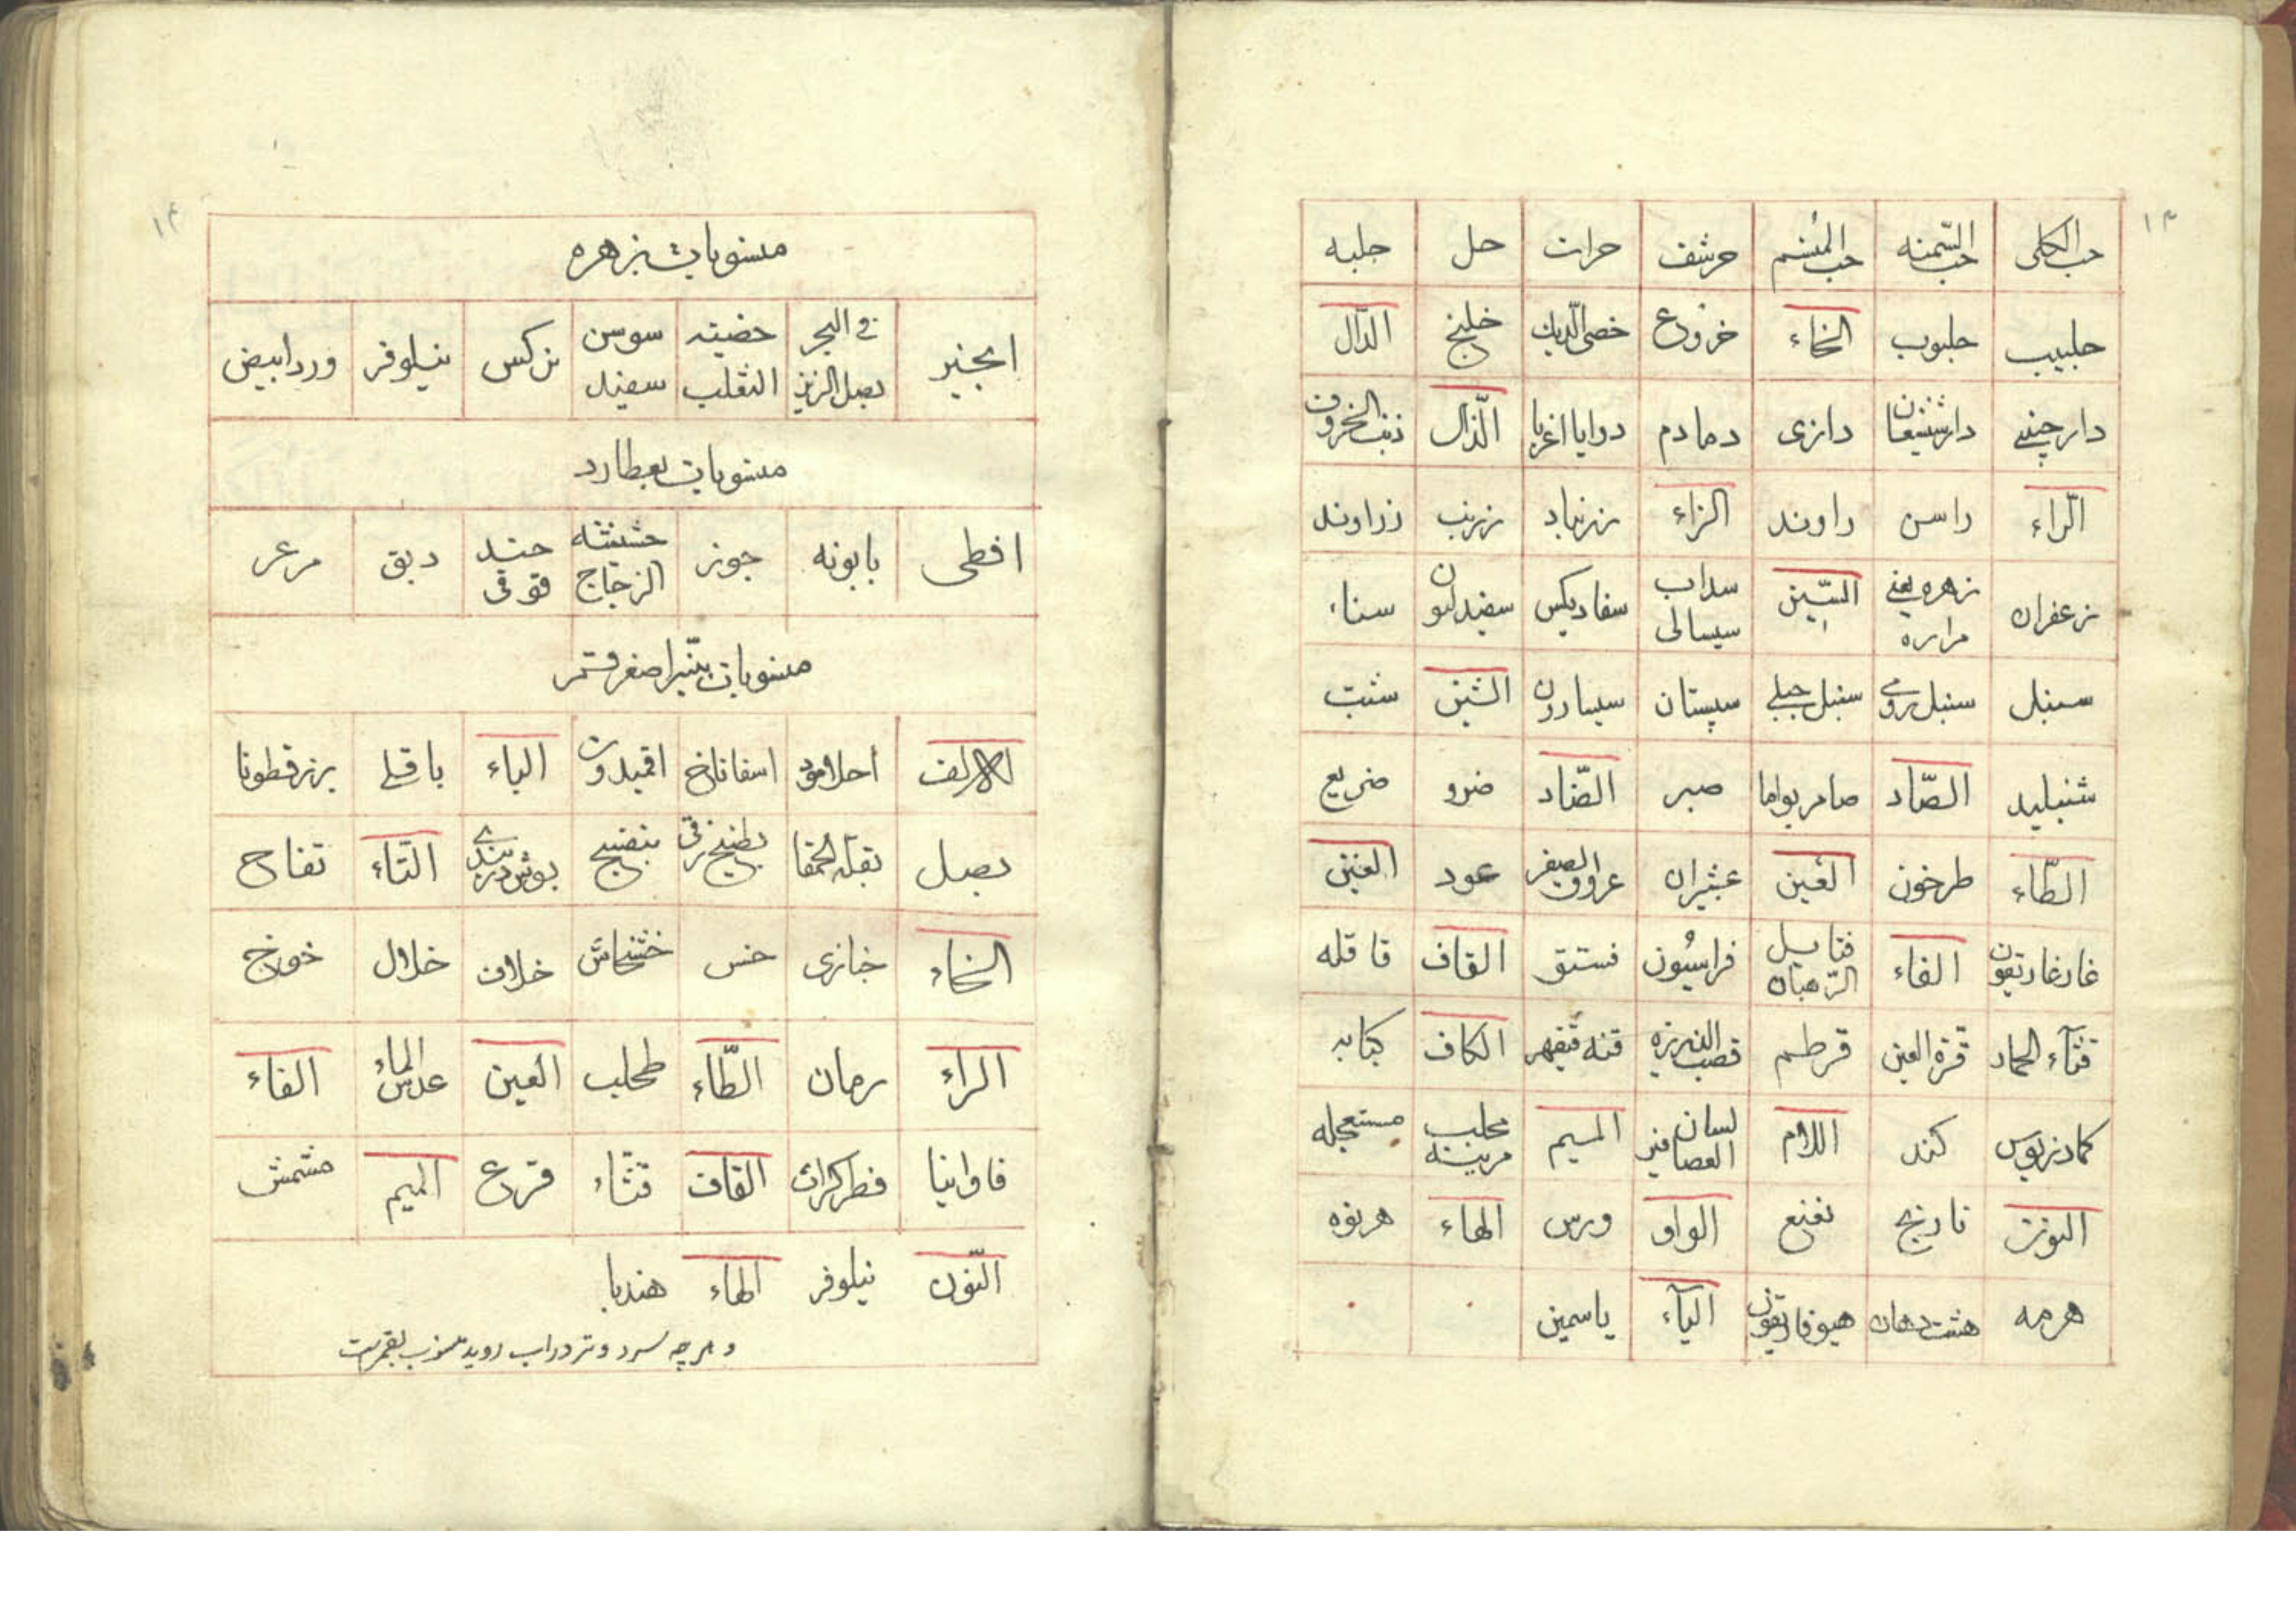 ۱۳
حب الکلی حب السّمنه حب المنشم حرشف حراث حل حلبه
حلبیب حلبوب الخاء خروع خصی الدیك خلنج الدّال
دارچینی دارشیشعان دازی دمادم الذّال ذنب الخروف
الرّاء راسن راوند الزاء زرنباد زرنب زراوند
زعفران زهره یعنی مراره السّین سداب سیسالی سفادیکس سناء
سنبل سنبل رومی سنبل جبلی سپستان سیسارون الشین شبت
شنبلید الصّاد صبر الضّاد ضرو ضریع
الطّاء طرخون العین عبثیران عروق الصفر عود الغین
الفاء فتایل الرّهبان فراسیُون فستق القاف قاقله
قثآء الحمار قرّة العین قرطم قصب الذریره قنه الکاف کبابه
کمادریوس کند اللام لسان العصافیر المیم محلب مستعجله
النون نارنج نعنع الواو ورس الهاء هرنوه
هرمه هشت دهان هیوفاریقون الیآء یاسمین
۱۴
منسوبات بزهره
انجیر فی البحر بصل الزیز خصیته الثعلب سوسن سفید نرکس نیلوفر ورد ابیض
منسوبات بعطارد
افطی بابونه جوز حشیشه الزجاج حند قوقی دبق مرعر
منسوبات بنیّر اصغر قمر
الالف اسفاناخ الباء باقلی بزرقطونا
بصل بقلة الحمقا بطیخ رقی بنفسج بوش دربندی التّاء تفاح
الخاء خبازی خس خشخاش خلاف خلال خوخ
الراء رمان الطّاء طحلب العین عدس الماء الفاء
فاوانیا فطر القاف قثّاء قرع المیم مشمش
النّون نیلوفر الهاء هندبا
و هرچه سرد و تر در اب روید منسوب بقمرست